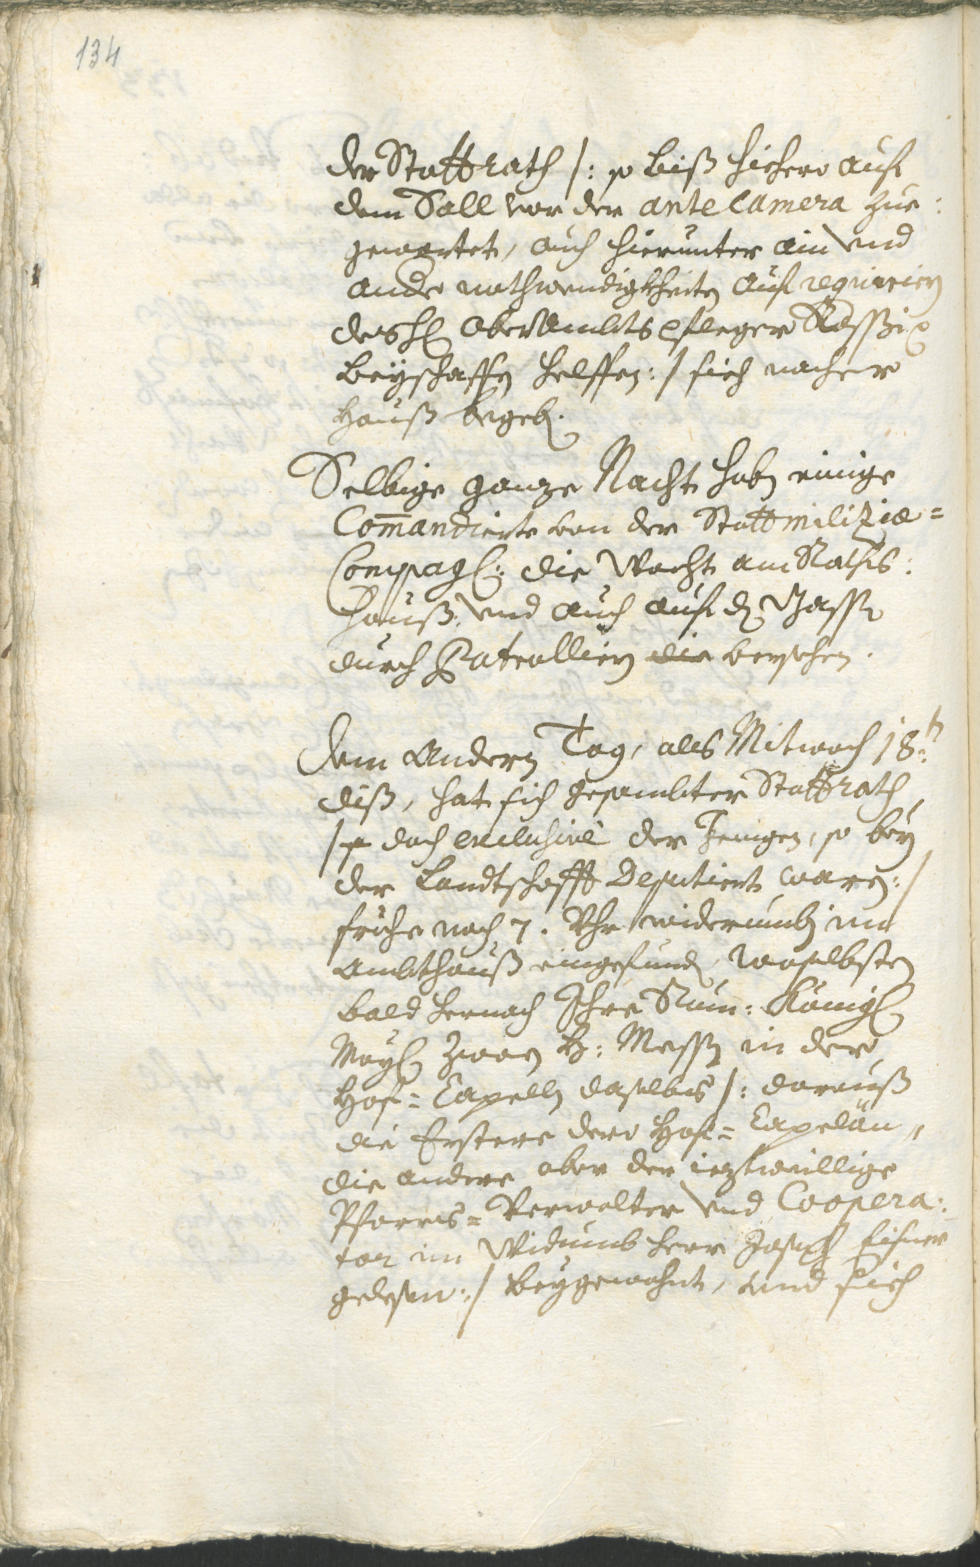 134
der Stattrath /: so biß hiehero auf
dem Sall vor der anteCamera zue:
gewartet, auch hierunter ain vnd
andre nothwendigkheiten auf requirirn
des H: OberAmbts Pfleger
beyschaffen helffen :/ sich nacher
Hauß begeb.
Selbige ganze Nacht habn einige
Com̄andierte von der Stattmiliziæ=
Compagl: die Wacht am Rathis:
hauß, vnd auch auf d Gassn
durch Patrollirn die versehen.
Dem Andern Tag, als Mitwoch 18:t
diß, hat sich gesambter Stattrath,
/: doch exclusivè der Jenigen, so bey
der Landtschafft Deputiert waren :/
frühe nach 7. Vhr widerumb im
Ambthauß eingefund, woselbsten
bald hernach Ihre Röm: Königl
Mayl zwen H: Messn in der
Hof=Capelln daselbs /: darauß
die Erstere dero Hof=Capelän,,
die andere aber der iezmaillige
Pfarrs=Verwalter vnd Coopera:
tor im Widumb Herr Joseph
gelesen :/ beygewohnt, vnd sich